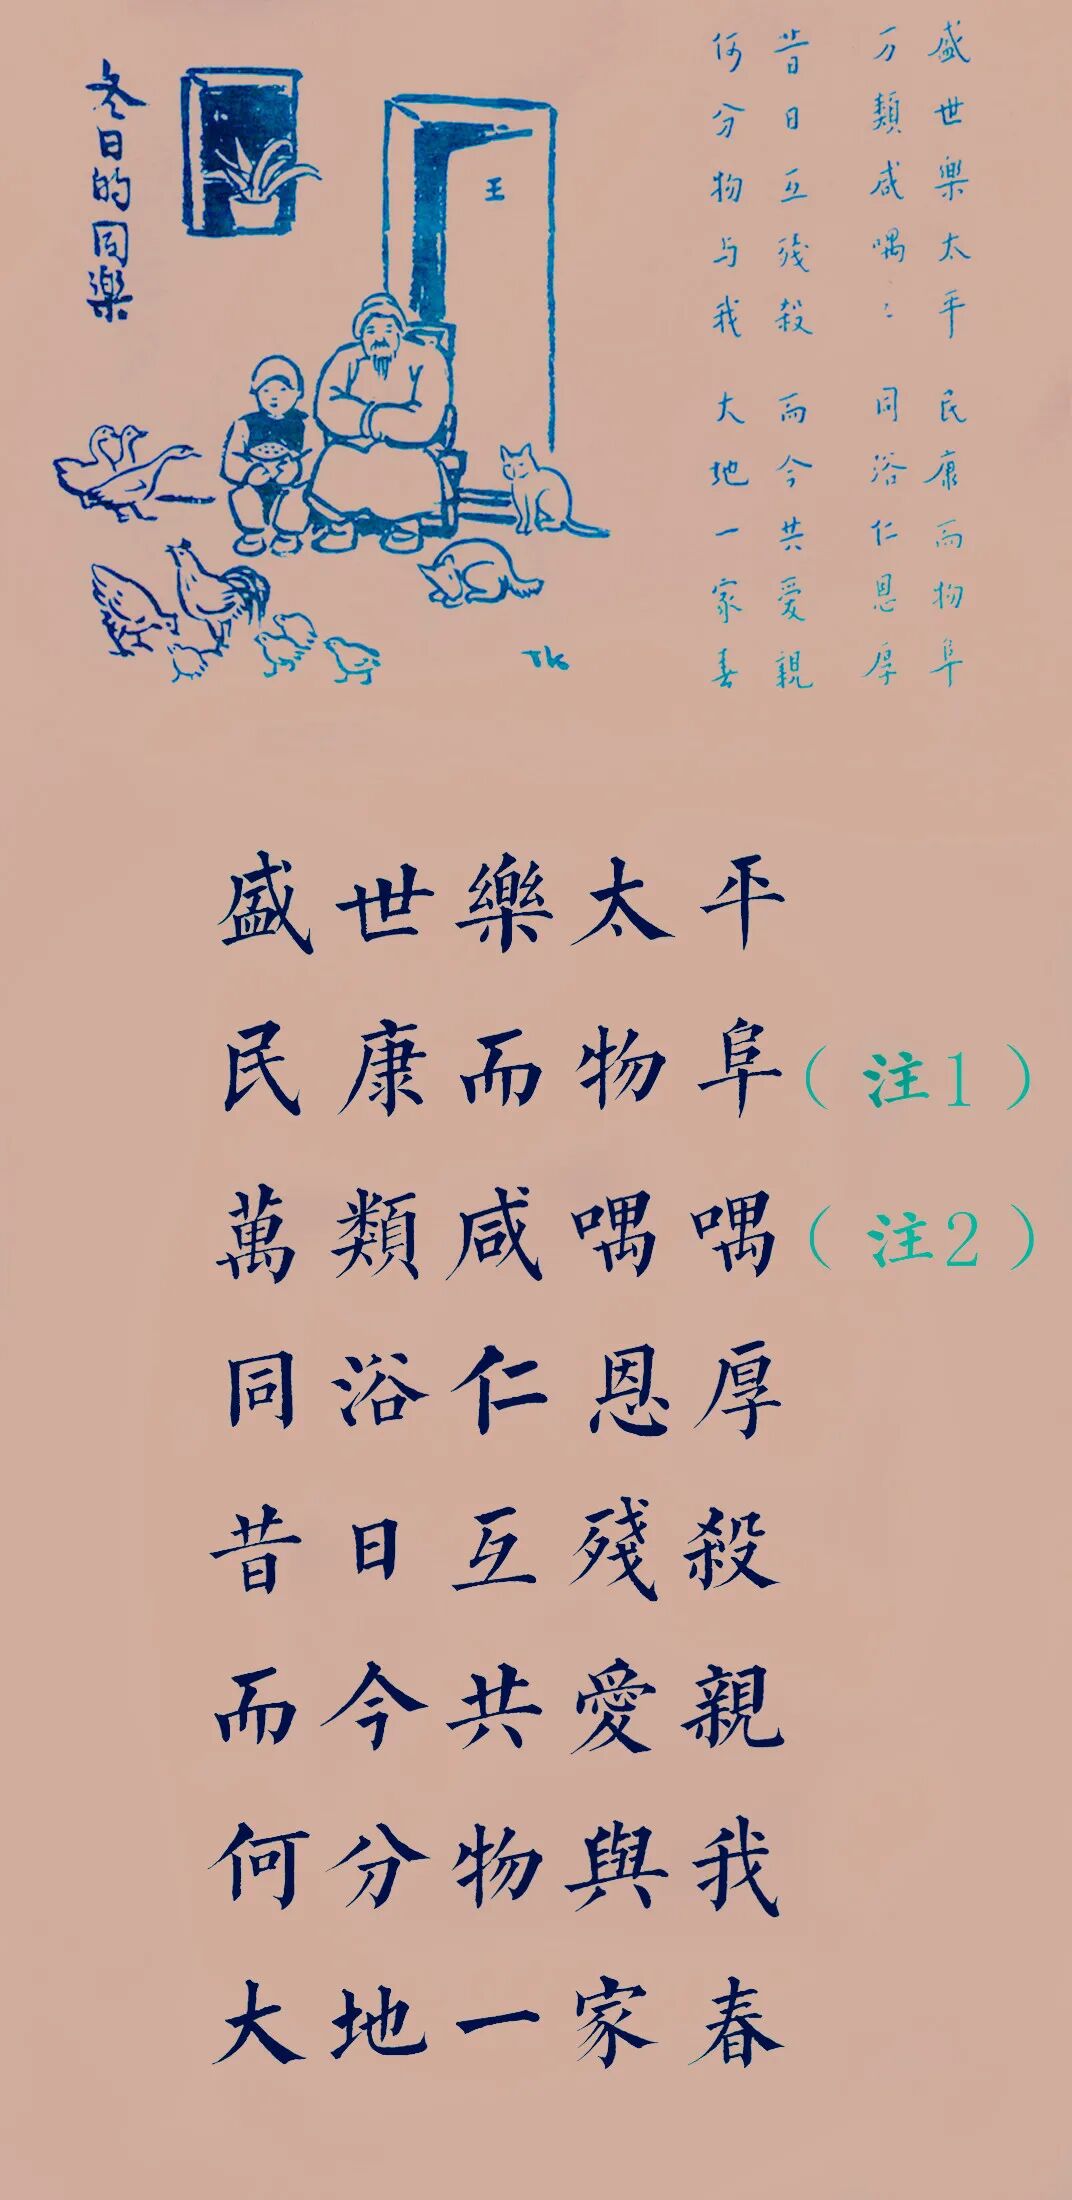 冬日的同樂
王
TK
盛世樂太平 民康而物阜
万類咸喁〻 同浴仁恩厚
昔日互殘殺 而今共愛親
何分物与我 大地一家春
盛世樂太平
民康而物阜(注1)
萬類咸喁喁(注2)
同浴仁恩厚
昔日互殘殺
而今共愛親
何分物與我
大地一家春